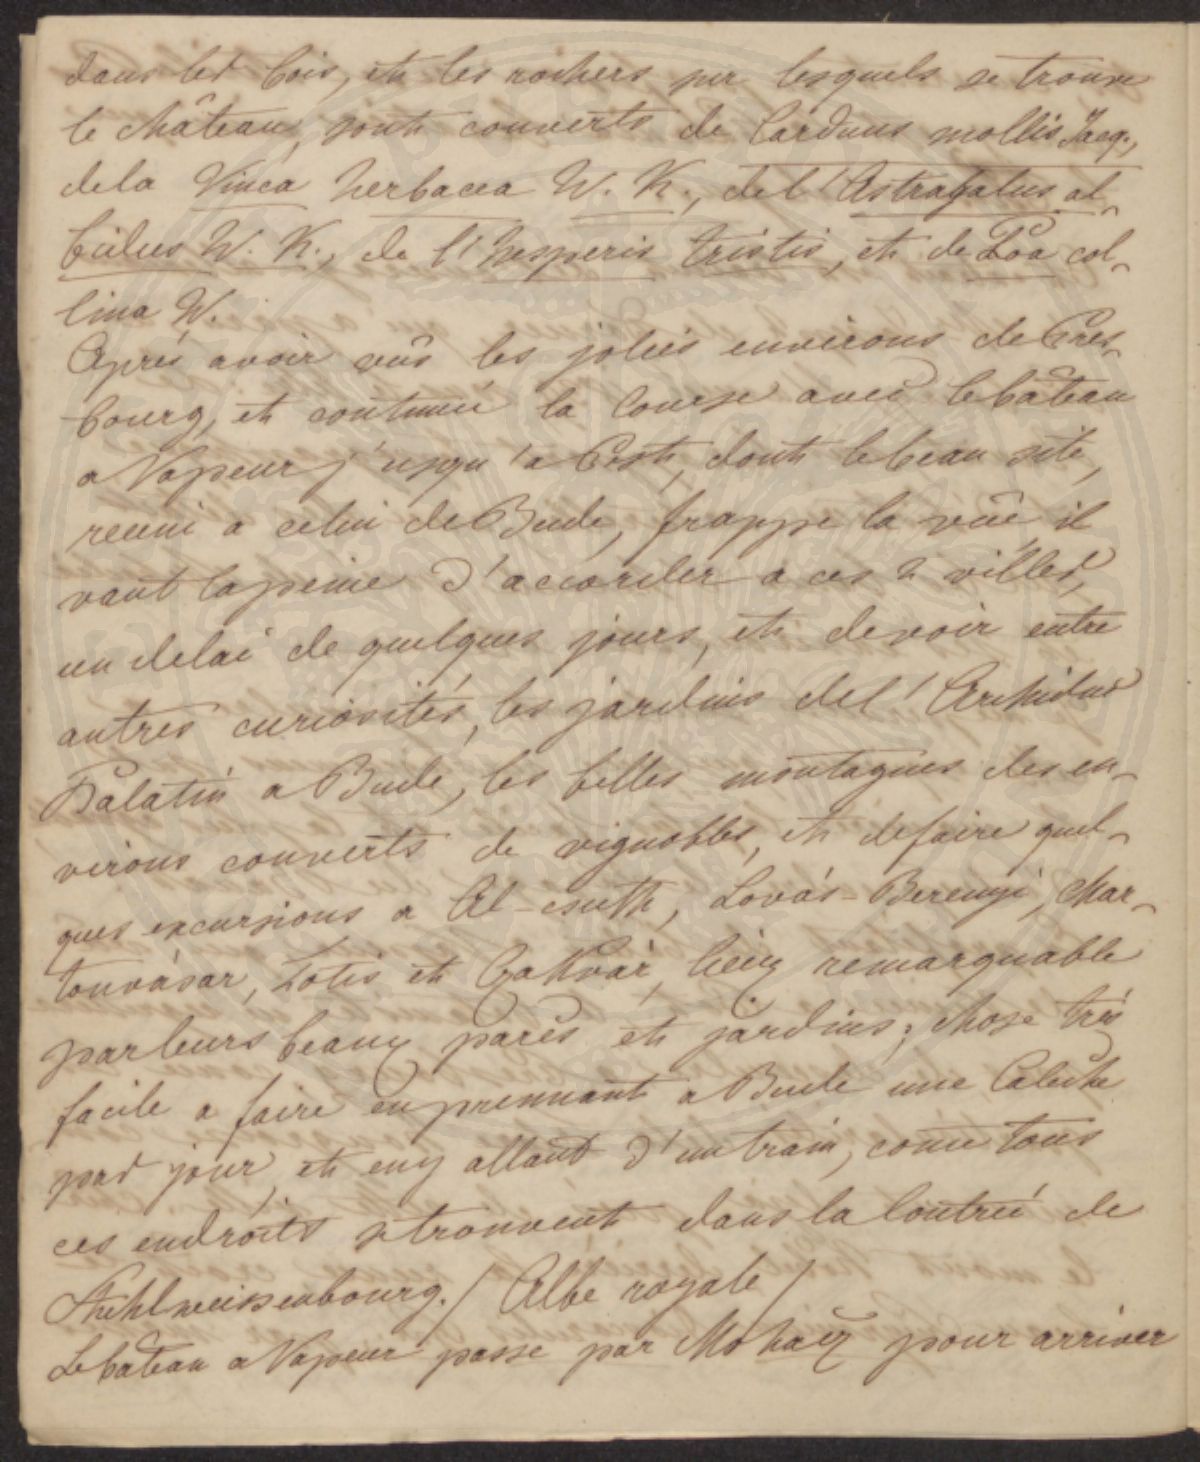 dans les bois, et les rochers sur lesquels se trouve
le château, sont couverts de Carduus mollis Jacq.,
dela Vinca herbacea W. K., del'Astragalus al-
bidus W. K., de l'hesperis tristis, et de Poa col-
lina W.
Après avoir vûs les jolies environs de Pres-
bourg, et continué la Course avec le bâteau
a Vapeur j'usqu'a Pest, dont le beau site,
reuni a celui de Bude, frappe la vûe, il
vaut la peine d'accorder a ces 2 villes,
un delai de quelques jours, et de voir entre
autres curiosités, les jardins del'Archiduc
Palatin a Bude, les belles montagnes des en-
virons couverts de vignobles, et de faire quel-
ques excursions a Al-csuth, Lovás-Berenyi, Mar-
tonvásar, Totis et Gakvár, lieux remarquable
par leurs beaux parcs et jardins; chose très
facile a faire en prennant a Bude une Caleche
par jour, et en y allant d'un train, come tous
ces endroits se trouvent dans la Contrée de
Stuhlweissenbourg. / Albe royale /
Le bâteau a Vapeur passe par Mohacz pour arriver